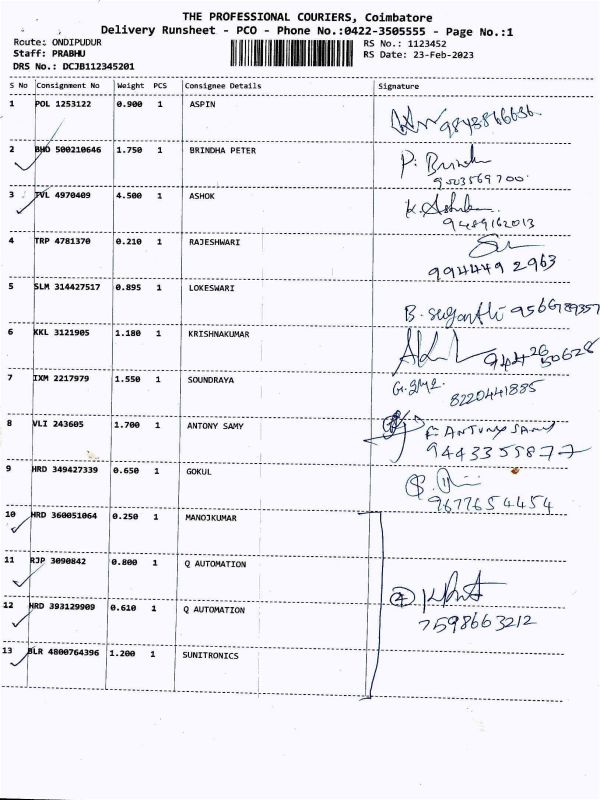 THE PROFESSIONAL COURIERS, Coimbatore
Delivery Runsheet - PCO - Phone No.:0422-3505555 - Page No.:1
Route: ONDIPUDUR RS No.: 1123452
Staff: PRABHU RS Date: 23-Feb-2023
DRS No.: DCJB112345201
S No Consignment No Weight PCS Consignee Details Signature
1 POL 1253122 0.900 1 ASPIN
9843866636.
2 BHO 500210646 1.750 1 BRINDHA PETER P. Brindha
9503569700.
3 PVL 4970409 4.500 1 ASHOK K. Ashok
9489162013
4 TRP 4781370 0.210 1 RAJESHWARI
9944492963
5 SLM 314427517 0.895 1 LOKESWARI B. Suganthi 9566789357
6 KKL 3121905 1.180 1 KRISHNAKUMAR
7 IXM 2217979 1.550 1 SOUNDRAYA
8220441885
8 VLI 243605 1.700 1 ANTONY SAMY F. ANTONY SAMY
9443355877
9 HRD 349427339 0.650 1 GOKUL
9677654454
10 HRD 360051064 0.250 1 MANOJKUMAR
11 RJP 3090842 0.800 1 Q AUTOMATION
12 HRD 393129909 0.610 1 Q AUTOMATION 4
7598663212
13 BLR 4800764396 1.200 1 SUNITRONICS